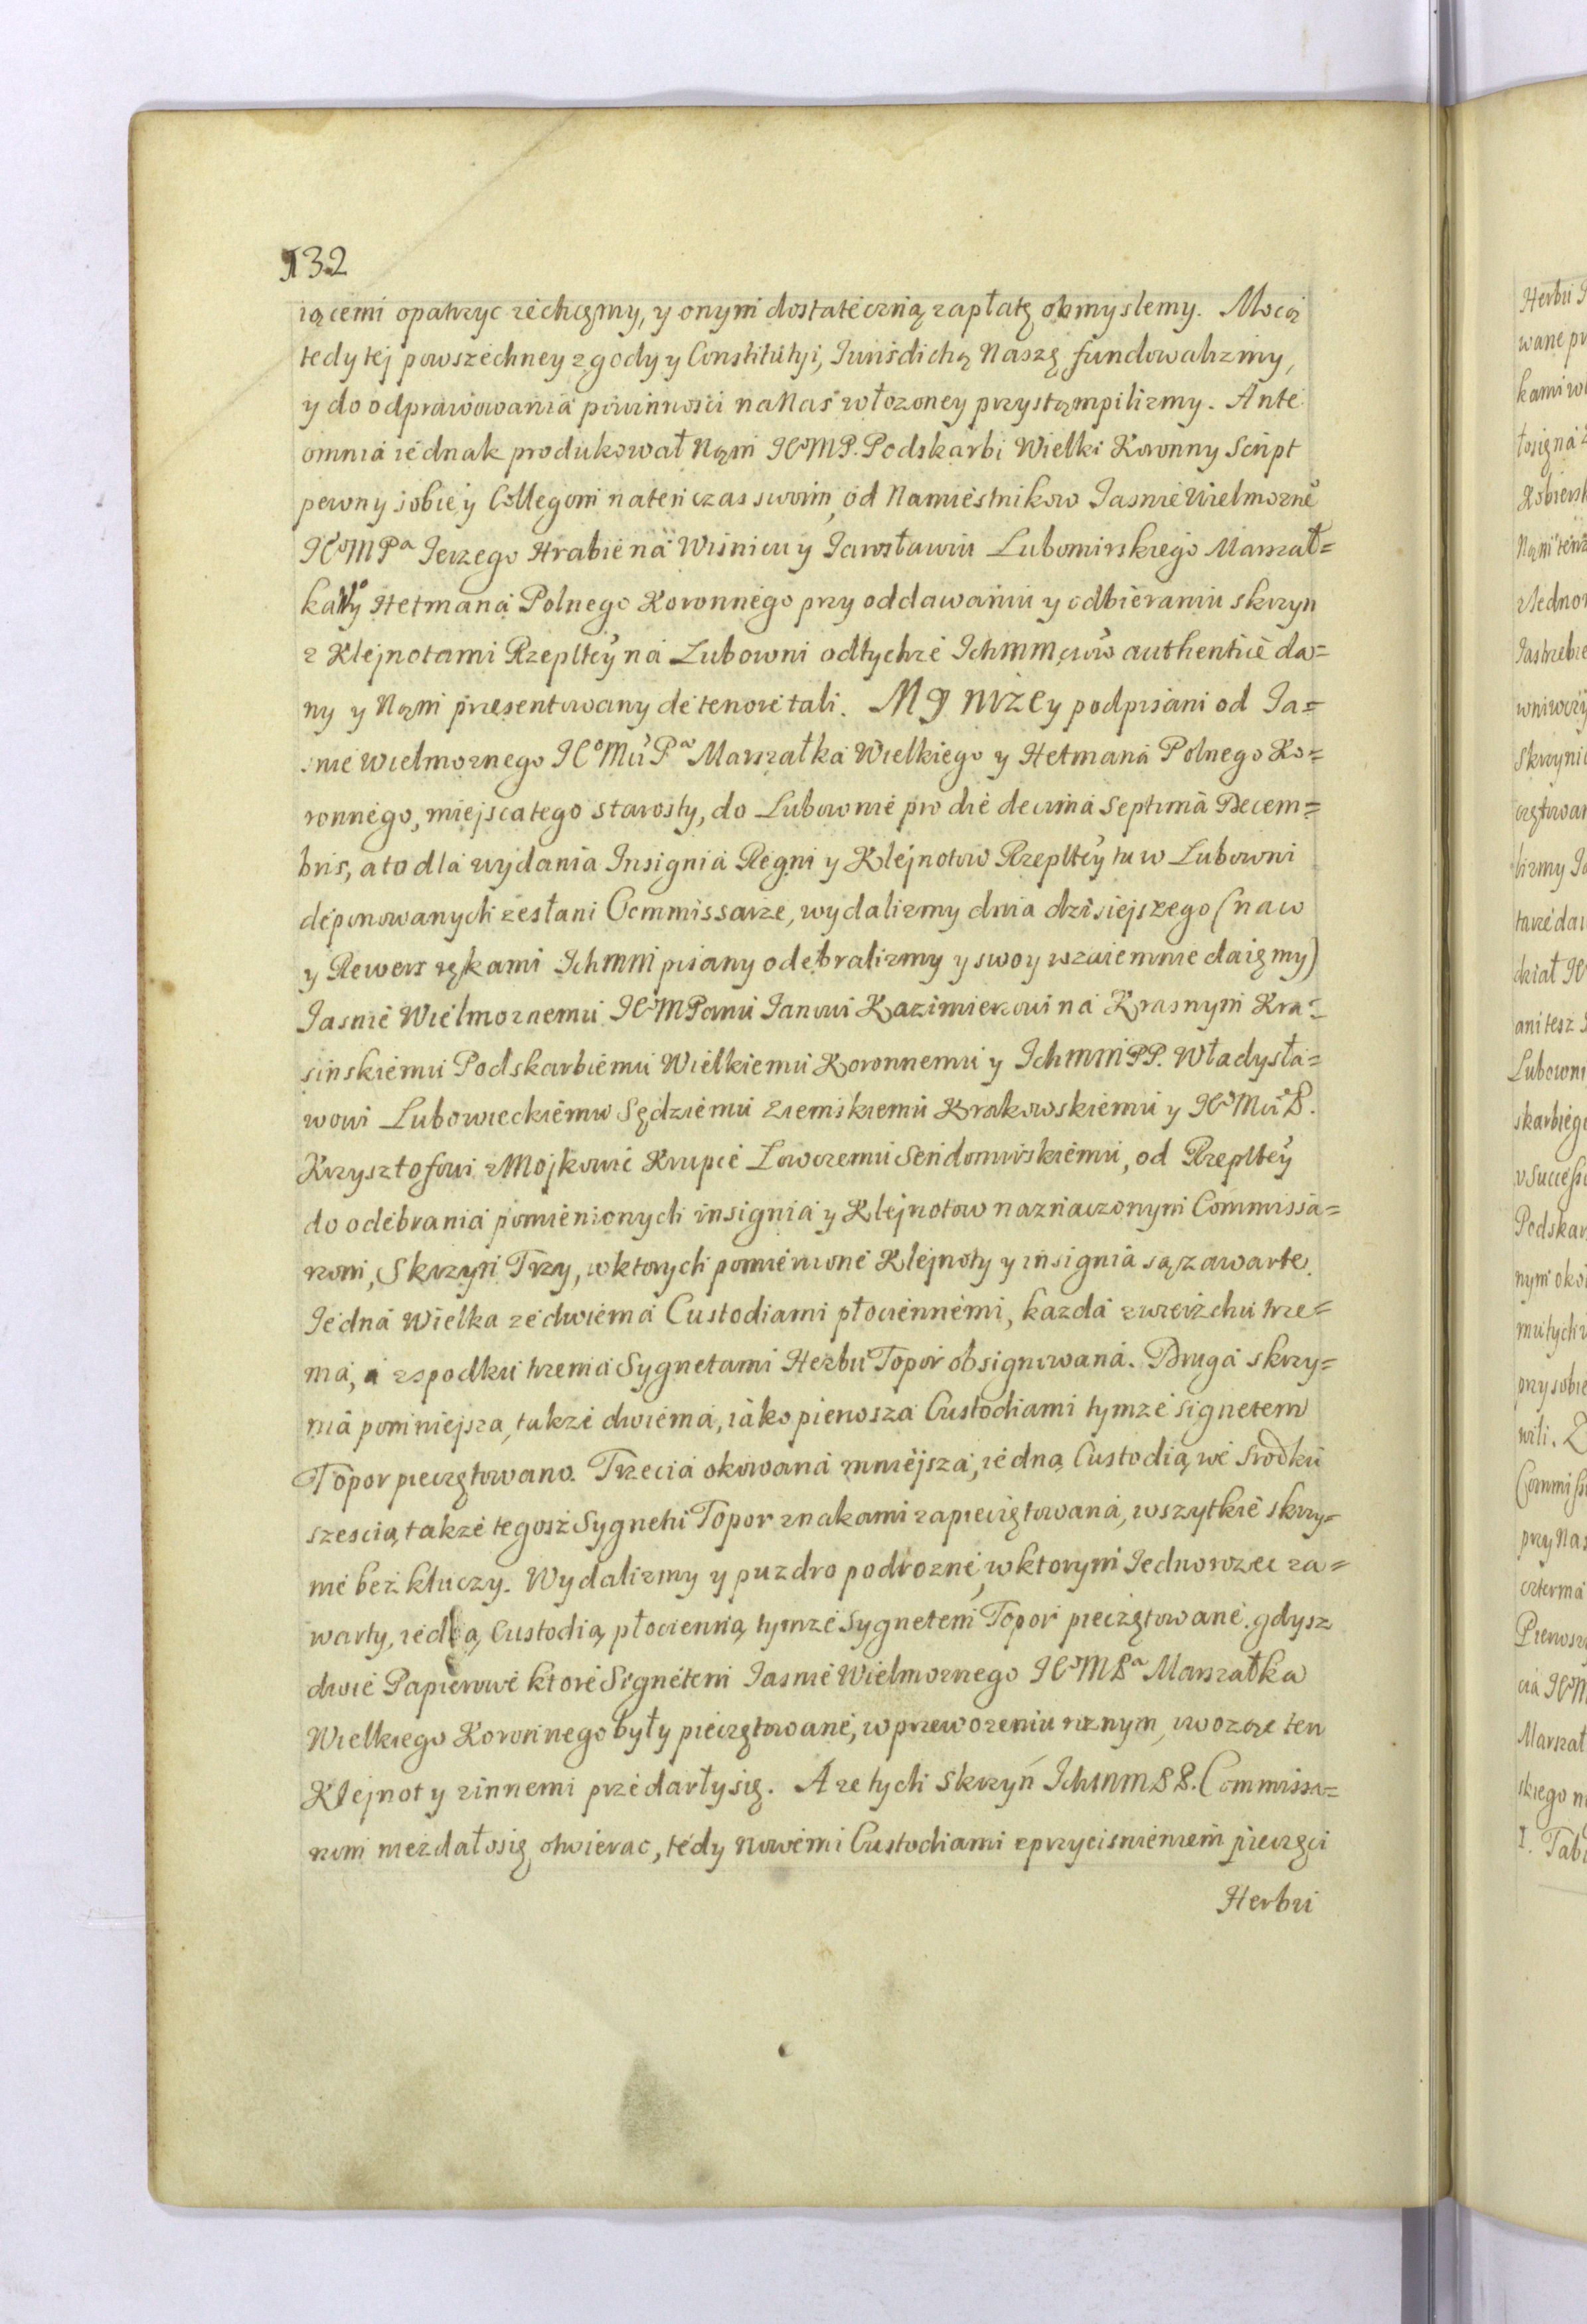 132
iącemi opatrzyc zechcęmy, y onym dostateczną zapłatę obmyslemy. Mocą
tedy tej powszechney zgody y Constitutyi, Iurisdictią Naszę fundowalizmy,
y do odprawowania powinnosci na Nas włozoney przystąmpilizmy. Ante
omnia iednak produkował Nąm IeoMP. Podskarbi Wielki Koronny Script
pewny sobie y Collegom natenczas swoim, od Namiestnikow Iasnie Wielmozne
IeoMPa Ierzego Hrabie na Wisniczu y Iarosławiu Lubomirskiego Marszał=
ka Wo y Hetmana Polnego Koronnego przy oddawaniu y odbieraniu skrzyn
z Klejnotami Rzepltey na Lubowni od tychze Ichmmciow authentice da=
ny y Nąm prezentowany de tenore tali. My nizey podpisani od Ia=
snie Wielmoznego IeoMci Pa Marszałka Wielkiego y Hetmana Polnego Ko=
ronnego, miejsca tego starosty, do Lubownie pro die decima septima Decem=
bris, a to dla wydania Insignia Regni y Klejnotow Rzepltey tu w Lubowni
deponowanych zesłani Commissarze, wydalizmy dnia dzisiejszego (na w
y Rewers rękami Ichmm pisany odebralizmy y swoy wzaiemnie daięmy)
Iasnie Wielmoznemu IeoMPanu Ianowi Kazimierzowi na Krasnym Kra=
sinskiemu Podskarbiemu Wielkiemu Koronnemu y Ichmm PP. Władysła=
wowi Lubowieckiemu Sędziemu Ziemskiemu Krakowskiemu y IeoMci P.
Krzysztofowi z Mojkowic Krupce Lowczemu Sendomirskiemu, od Rzepltey
do odebrania pomienionych insignia y Klejnotow naznaczonym Commissa=
rzom, Skrzyn Trzy, w ktorych pomienione Klejnoty y insignia są zawarte.
Iedna Wielka ze dwiema Custodiami płociennemi, kazda z wierzchu trze=
ma, a zspodku trzema Sygnetami Herbu Topor obsignowana. Druga skrzy=
nia pomniejsza, takze dwiema, iako pierwsza Custodiami tymze signetem
Topor pieczętowano. Trzecia okowana mniejsza, iedną Custodią, we srodku
szescią, takze tegosz Sygnetu Topor znakami zapieczętowana, wszytkie skrzy=
nie bez kluczy. Wydalizmy y puzdro podrozne, w ktorym Iednorozec za=
warty, iedną Custodią płocienną tymze Sygnetem Topor pieczętowane, gdysz
dwie Papierowe ktore Signetem Iasnie Wielmoznego IeoMPa Marszałka
Wielkiego Koronnego były pieczętowane, w przewozeniu roznym, uwozcze ten
Klejnot y zinnemi przedarły się. A ze tych Skrzyń Ichmm PP. Commissa=
rzom niezdało się otwierac, tedy Nowemi Custodiami z przycisnieniem pieczęci
Herbu